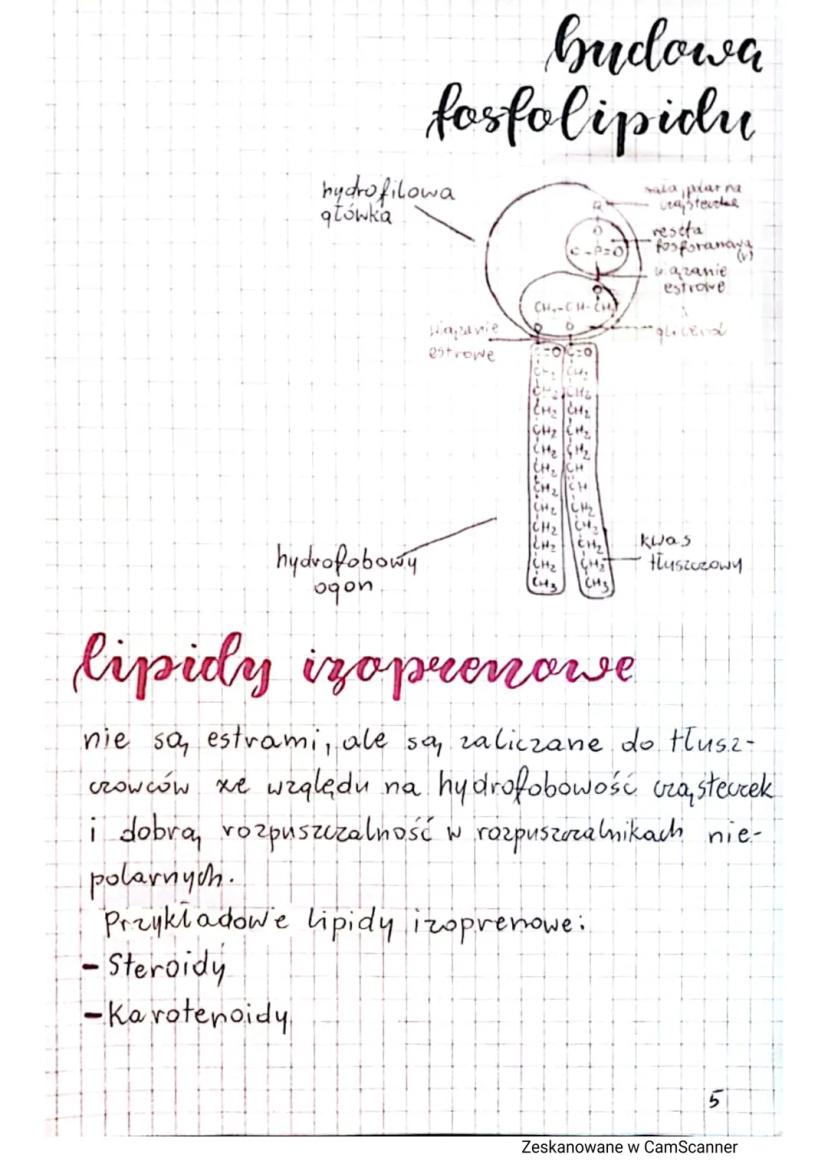 budowa
fosfolipidu
hydrofilowa
główka
mała, polarna
cząsteczka
R
reszta
fosforanowa
(V)
O
O-P=O
wiązanie
estrowe
O
CH₂-CH-CH₂
glicerol
wiązanie
estrowe
O O
C=O C=O
CH₂ CH₂
CH₂ CH₂
CH₂ CH₂
CH₂ CH₂
CH₂ CH₂
CH₂ CH
CH₂ CH
CH₂ CH₂
CH₂ CH₂
CH₂ CH₂
CH₂ CH₂
CH₃ CH₃
hydrofobowy
ogon
kwas
tłuszczowy
lipidy izoprenowe
nie są estrami, ale są zaliczane do tłusz-
czowców ze względu na hydrofobowość cząsteczek
i dobrą rozpuszczalność w rozpuszczalnikach nie-
polarnych.
Przykładowe lipidy izoprenowe:
- Steroidy
- Karotenoidy
5
Zeskanowane w CamScanner